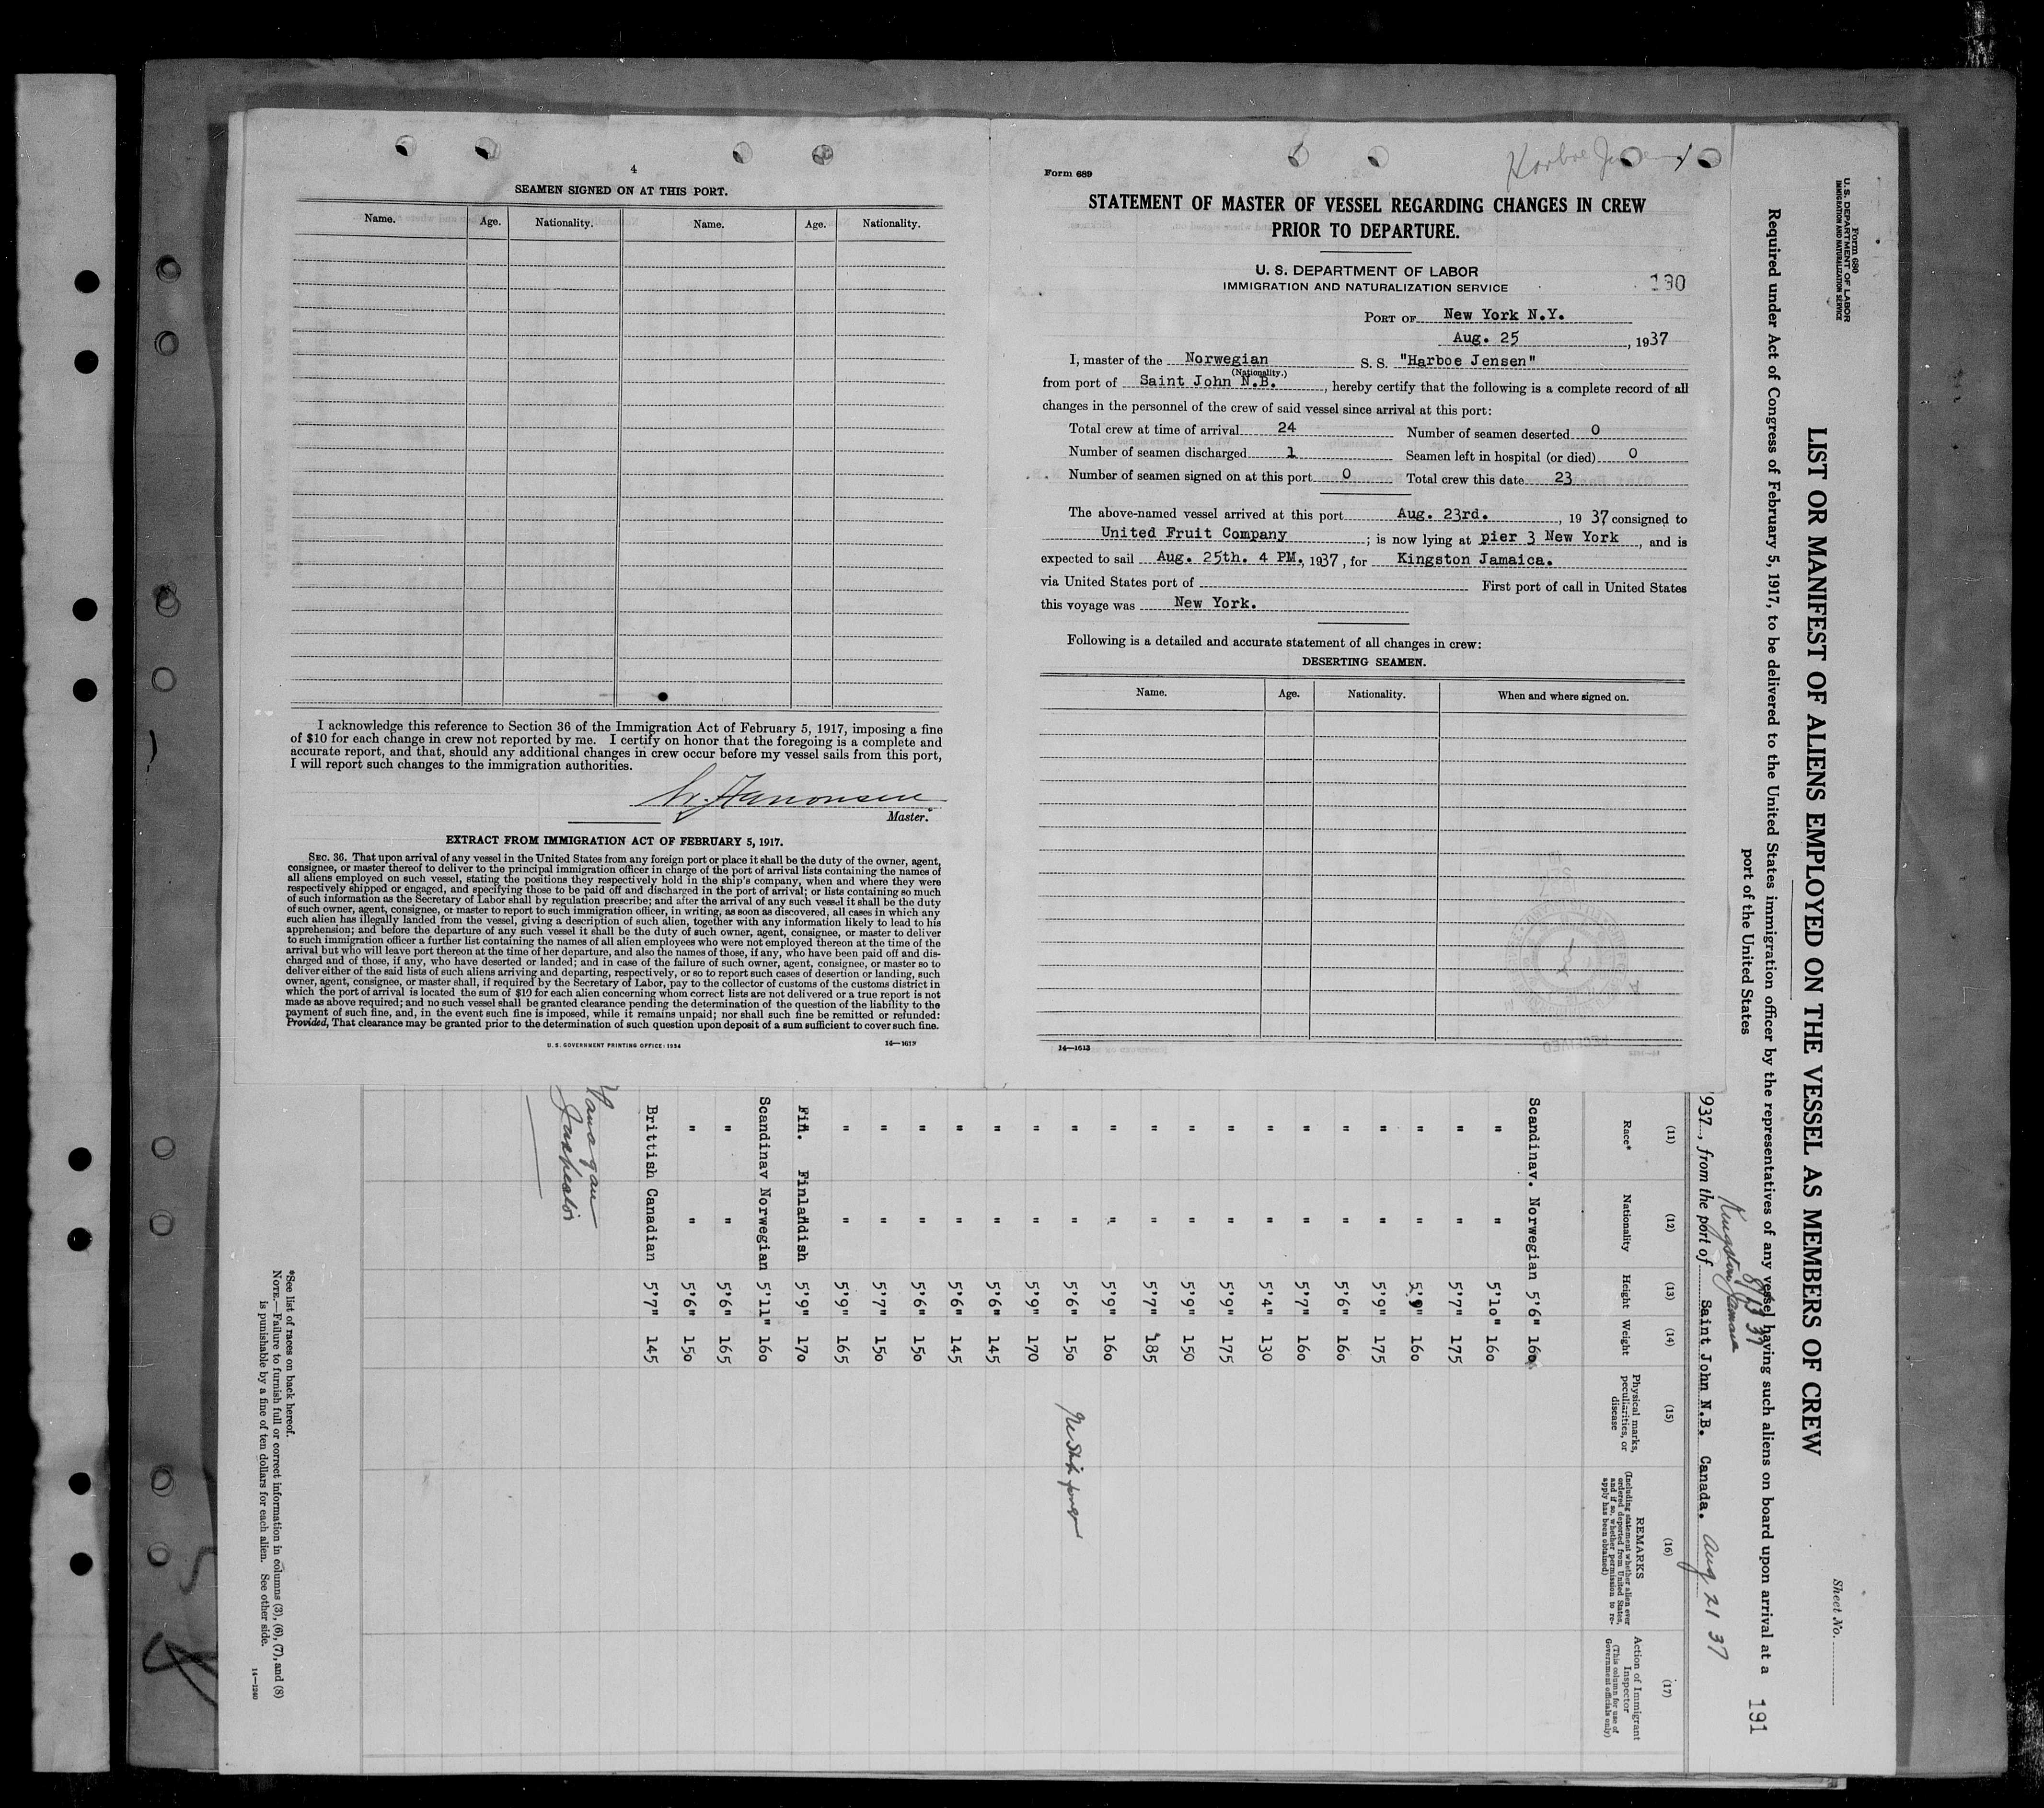 4
SEAMEN SIGNED ON AT THIS PORT.
Name. Age. Nationality. Name. Age. Nationality.
I acknowledge this reference to Section 36 of the Immigration Act of February 5, 1917, imposing a fine
of $10 for each change in crew not reported by me. I certify on honor that the foregoing is a complete and
accurate report, and that, should any additional changes in crew occur before my vessel sails from this port,
I will report such changes to the immigration authorities.
Master.
EXTRACT FROM IMMIGRATION ACT OF FEBRUARY 5, 1917.
SEC. 36. That upon arrival of any vessel in the United States from any foreign port or place it shall be the duty of the owner, agent,
consignee, or master thereof to deliver to the principal immigration officer in charge of the port of arrival lists containing the names of
all aliens employed on such vessel, stating the positions they respectively hold in the ship's company, when and where they were
respectively shipped or engaged, and specifying those to be paid off and discharged in the port of arrival; or lists containing so much
of such information as the Secretary of Labor shall by regulation prescribe; and after the arrival of any such vessel it shall be the duty
of such owner, agent, consignee, or master to report to such immigration officer, in writing, as soon as discovered, all cases in which any
such alien has illegally landed from the vessel, giving a description of such alien, together with any information likely to lead to his
apprehension; and before the departure of any such vessel it shall be the duty of such owner, agent, consignee, or master to deliver
to such immigration officer a further list containing the names of all alien employees who were not employed thereon at the time of the
arrival but who will leave port thereon at the time of her departure, and also the names of those, if any, who have been paid off and dis-
charged and of those, if any, who have deserted or landed; and in case of the failure of such owner, agent, consignee, or master so to
deliver either of the said lists of such aliens arriving and departing, respectively, or so to report such cases of desertion or landing, such
owner, agent, consignee, or master shall, if required by the Secretary of Labor, pay to the collector of customs of the customs district in
which the port of arrival is located the sum of $10 for each alien concerning whom correct lists are not delivered or a true report is not
made as above required; and no such vessel shall be granted clearance pending the determination of the question of the liability to the
payment of such fine, and, in the event such fine is imposed, while it remains unpaid; nor shall such fine be remitted or refunded:
Provided, That clearance may be granted prior to the determination of such question upon deposit of a sum sufficient to cover such fine.
U. S. GOVERNMENT PRINTING OFFICE: 1934 14—1613
Harboe Jensen
Form 689
STATEMENT OF MASTER OF VESSEL REGARDING CHANGES IN CREW
PRIOR TO DEPARTURE.
U. S. DEPARTMENT OF LABOR
IMMIGRATION AND NATURALIZATION SERVICE
190
PORT OF New York N.Y.
Aug. 25, 1937
I, master of the Norwegian S. S. "Harboe Jensen"
(Nationality.)
from port of Saint John N.B., hereby certify that the following is a complete record of all
changes in the personnel of the crew of said vessel since arrival at this port:
Total crew at time of arrival 24 Number of seamen deserted 0
Number of seamen discharged 1 Seamen left in hospital (or died) 0
Number of seamen signed on at this port 0 Total crew this date 23
The above-named vessel arrived at this port Aug. 23rd., 1937 consigned to
United Fruit Company; is now lying at pier 3 New York, and is
expected to sail Aug. 25th. 4 PM., 1937, for Kingston Jamaica.
via United States port of First port of call in United States
this voyage was New York.
Following is a detailed and accurate statement of all changes in crew:
DESERTING SEAMEN.
Name. Age. Nationality. When and where signed on.
14—1613
Form 680
U. S. DEPARTMENT OF LABOR
IMMIGRATION AND NATURALIZATION SERVICE
Sheet No.
LIST OR MANIFEST OF ALIENS EMPLOYED ON THE VESSEL AS MEMBERS OF CREW
Required under Act of Congress of February 5, 1917, to be delivered to the United States immigration officer by the representatives of any vessel having such aliens on board upon arrival at a
port of the United States
191
8/13 37
Kingston Jamaica
937, from the port of Saint John N.B. Canada. Aug 21 37
(11) (12) (13) (14) (15) (16) (17)
Race* Nationality Height Weight Physical marks, peculiarities, or disease REMARKS (Including statement whether alien ever ordered deported from United States, and if so, whether permission to re-apply has been obtained) Action of Immigrant Inspector (This column for use of Government officials only)
Scandinav. Norwegian 5'6" 160
" " 5'10" 160
" " 5'7" 175
" " 5'9" 160
" " 5'9" 175
" " 5'6" 160
" " 5'7" 160
" " 5'4" 130
" " 5'9" 175
" " 5'9" 150
" " 5'7" 185
" " 5'9" 160
" " 5'6" 150
" " 5'9" 170
" " 5'6" 145
" " 5'6" 145
" " 5'6" 150
" " 5'7" 150
" " 5'9" 165
Fin. Finlandish 5'9" 170
Scandinav Norwegian 5'11" 160
" " 5'6" 165
" " 5'6" 150
Brittish Canadian 5'7" 145
Inspector
*See list of races on back hereof.
NOTE.—Failure to furnish full or correct information in columns (3), (6), (7), and (8)
is punishable by a fine of ten dollars for each alien. See other side.
14—1240